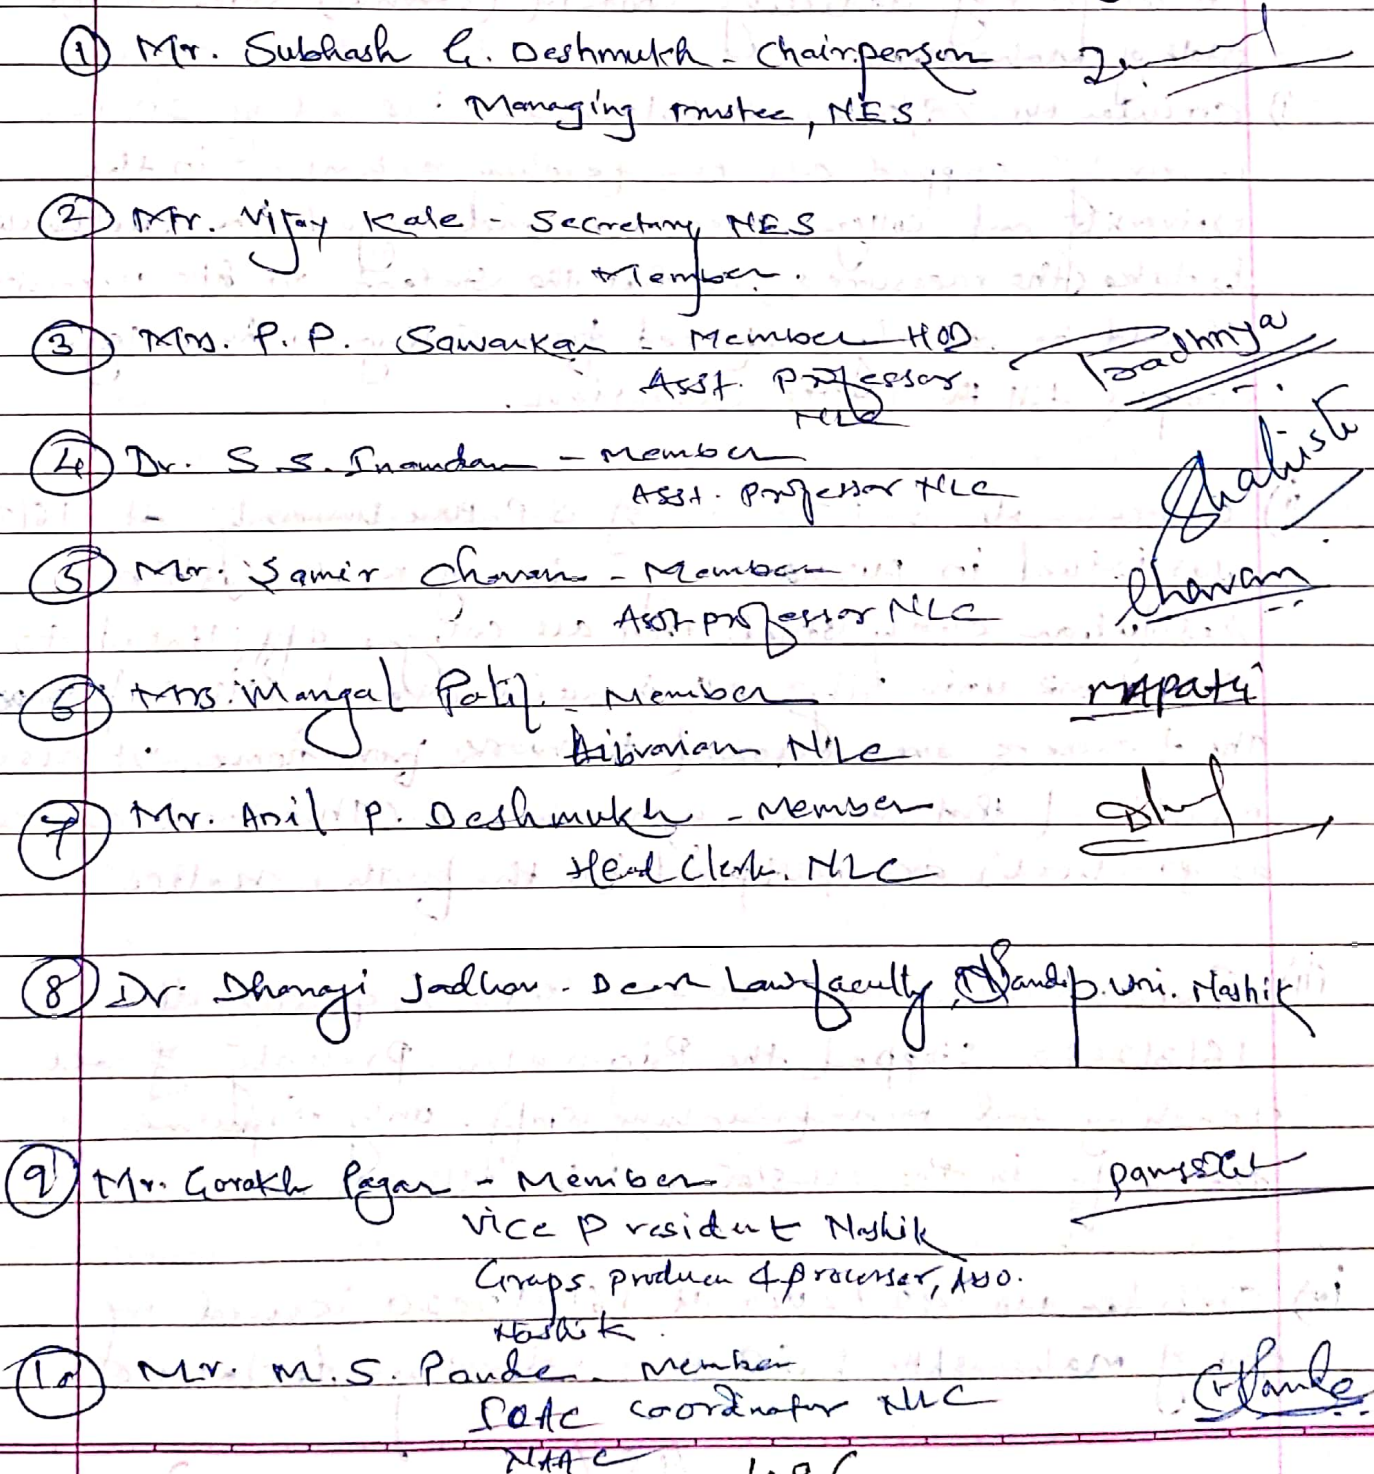 ① Mr. Subhash G. Deshmukh - Chairperson
Managing Trustee, NES.
② Mr. Vijay Kale - Secretary, NES
Member.
③ Mrs. P. P. Sawarkar - Member HOD.
Asst. Professor.
NLC
Pradhnya
④ Dr. S. S. Inamdar - Member
Asst. Professor NLC
Shahista
⑤ Mr. Samir Chavan - Member
Asst professor NLC
Chavan
⑥ Mrs. Mangal Patil - Member
Librarian NLC
⑦ Mr. Anil P. Deshmukh - Member
Head Clerk. NLC
⑧ Dr. Dhanaji Jadhav - Dean Law faculty, Sandip. Uni. Nashik
⑨ Mr. Gorakh Pagar - Member
Vice President Nashik
Graps. producer & processer, Asso.
Nashik.
⑩ Mr. M. S. Pande - Member
coordinator NLC
NAAC